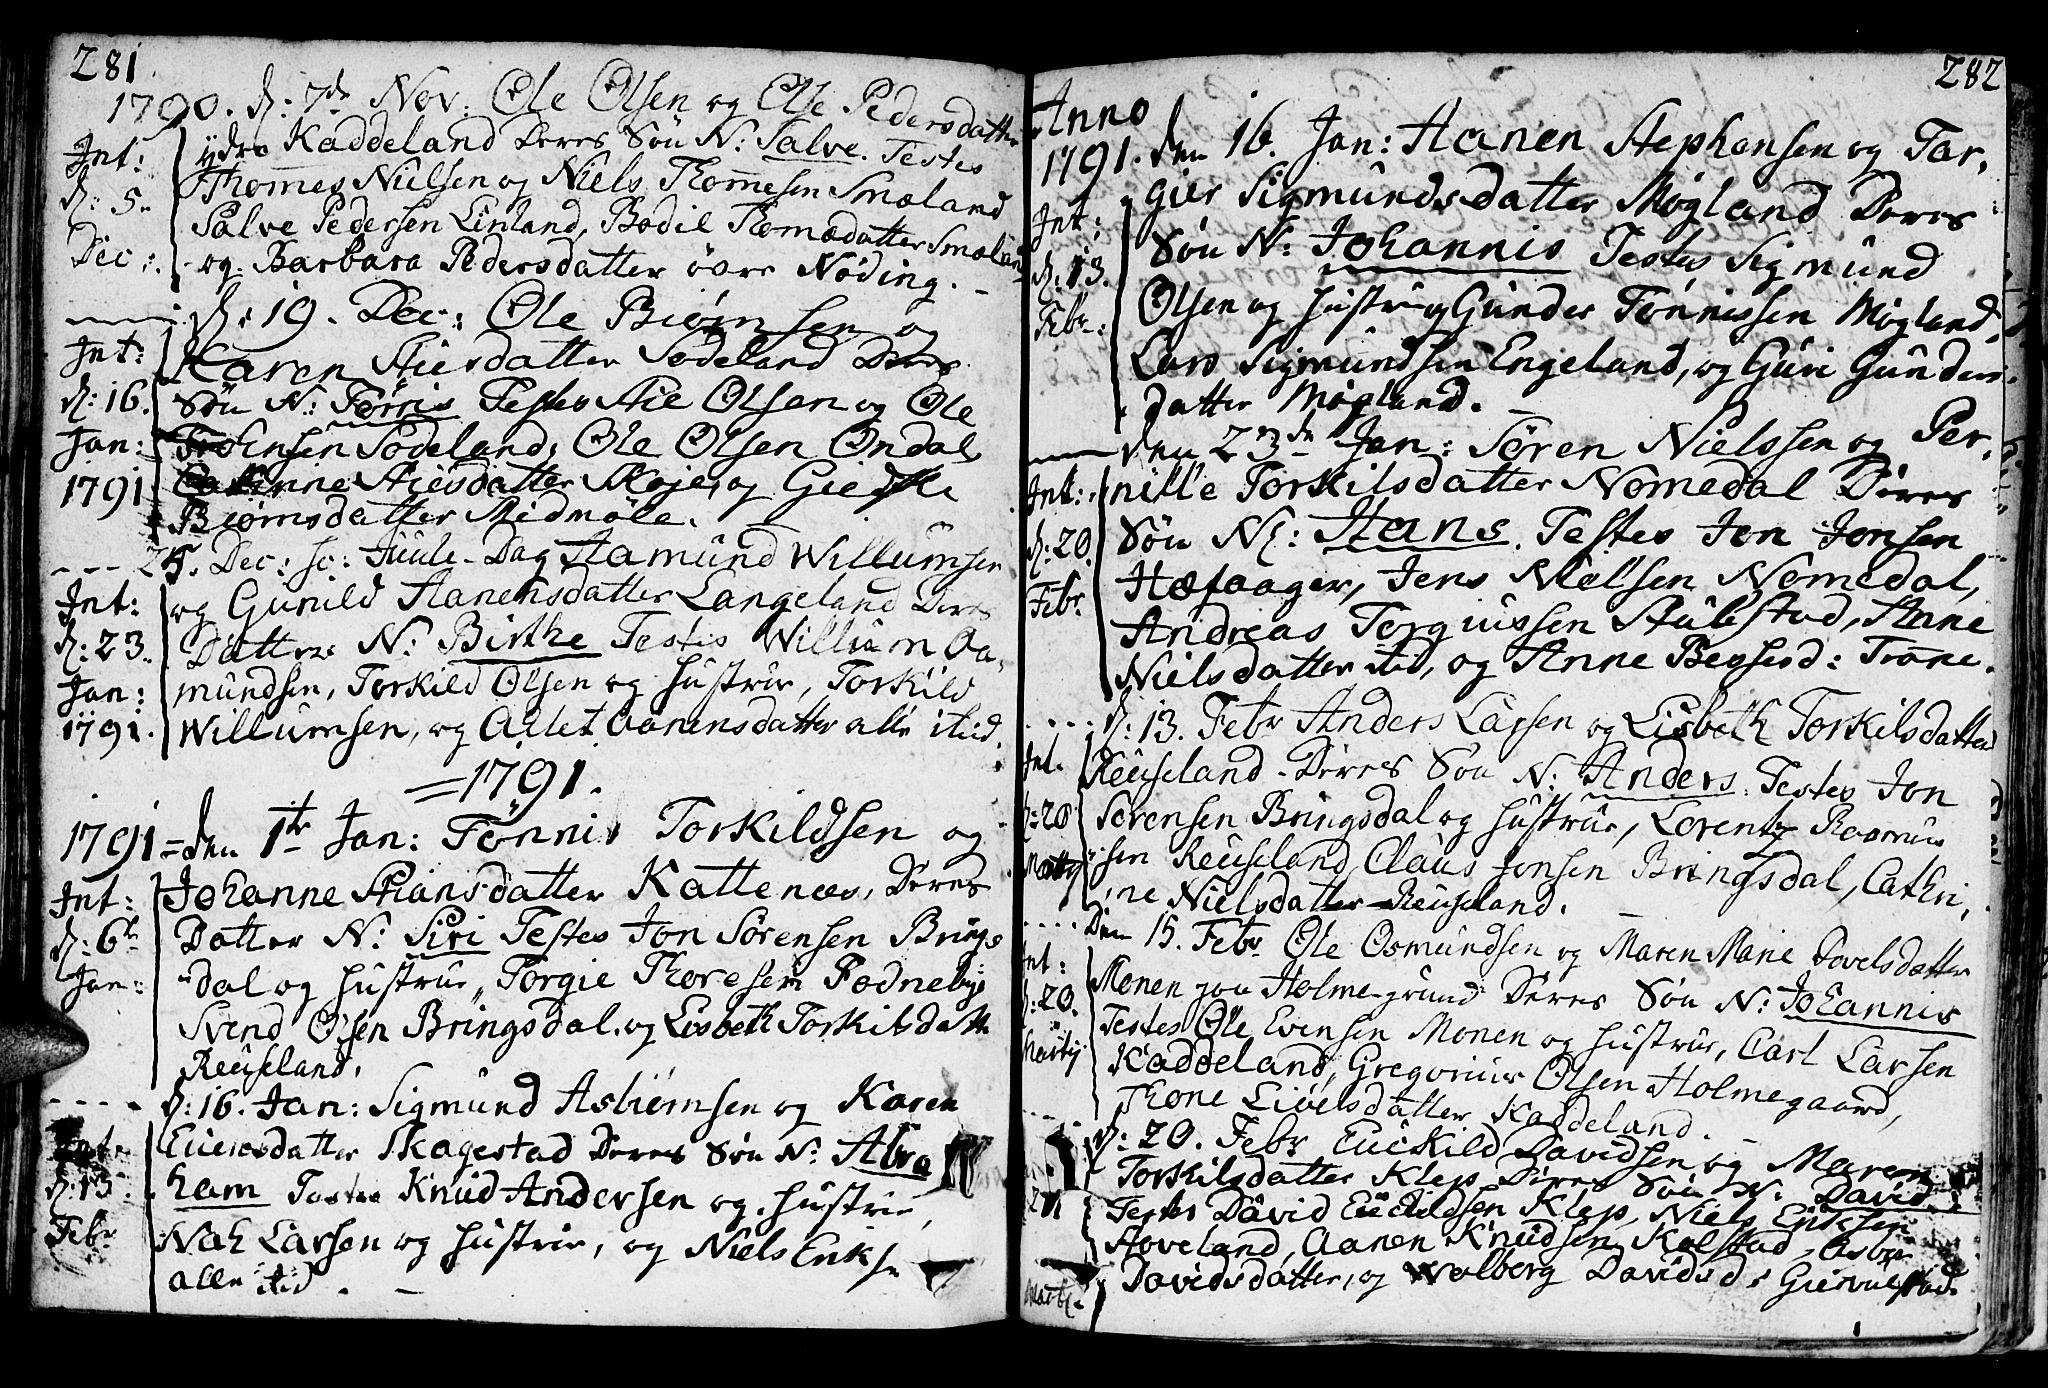 281
1790. d: 7de Nov: Ole Olsen og Else Pedersdatter
ydre Kaddeland Deres Søn N: Salve. Testes
Int:
Thomes Nielsen og Niels Thomesen Smæland
d: 5.
Salve Pedersen Linland, Bodil Tomædatter Smæland
Dec:
og Barbara Pedersdatter øvre Nøding.
d: 19. Dec: Ole Biørnsen og
Int:
Karen Aiesdatter Sodeland Deres
d: 16.
Søn N: Tørris Testes Aie Olsen og Ole
Jan:
Sodeland, Ole Olsen Ondal
1791
Aiesdatter og
Biørnsdatter Midmøle.
25. Dec: sc: Juule-Dag Aamund Willumsen
Int:
og Gunild Aanensdatter Langeland Deres
d: 23.
Datter N: Birthe Testes Willum Aa-
Jan:
mundsen, Torkild Olsen og Hustrue, Torkild
1791.
Willumsen, og Aanensdatter alle itid.
= 1791.
1791 = den 1ste Jan: Tønnis Torkildsen og
Int:
Johanne Stiansdatter Kattenæs, Deres
d: 6te
Datter N: Siri Testes Jon Sørensen Brings
Jan:
dal og Hustrue, Torgie Thoresen Fodnebye
Svend Olsen Bringsdal og Lisbeth Torkilsdatt
Reuseland.
d: 16. Jan: Sigmund Asbiørnsen og Karen
Int:
Euensdatter Skagestad Deres Søn N: Abra
d: 13
ham Testes Knud Andersen og Hustrue,
Febr
Nah Larsen og Hustrue, og Niels Eriks
alle itid.
282
Anno
1791. den 16. Jan: Aanen Stephensen og Tar-
gier Sigmundsdatter Møgland Deres
Int:
Søn N: Johannis Testes Sigmund
d: 13.
Olsen og Hustru, Gunder Tønnessen Møgland,
Febr:
Lars Sigmundsen Engeland, og Guri Gunders-
datter Møgland.
den 23de Jan: Søren Nielssen og Per-
Int:
nille Torkilsdatter Nomedal Deres
Søn N: Hans. Testes Jon Jonsen
d: 20
Hæsaager, Jens Nielsen Nomedal,
Febr
Andreas Torgiussen Aulestad, Anne
Nielsdatter itid, og Anne
d: 13. Febr Anders Larsen og Lisbeth Torkilsdatter
Int.
Reuseland Deres Søn N: Anders. Testes Jon
d: 20
Sørensen Bringsdal og Hustrue, Lorentz Rasmus
Martij
sen Reuseland, Claus Jonsen Bringsdal, Cathri-
ne Nielsdatter Reuseland.
Den 15. Febr Ole Osmundsen og Maren Marie Povelsdatter
Int:
Monen paa Holme-grund Deres Søn N: Johannis
d: 20.
Testes Ole Evensen Monen og Hustrue, Carl Larsen
Martij
Kaddeland, Gregorius Olsen Holmegaard,
Thone Livelsdatter Kaddeland.
d: 20. Febr Euekild Davidsen og Maren
Torkilsdatter Klep Deres Søn N: David
Testes David Euekildsen Klep, Niels Eriksen
Hoveland, Aanen Knudsen Kolstad, Asbu
Davidsdatter, og Wolberg Davidsd:
Martij.